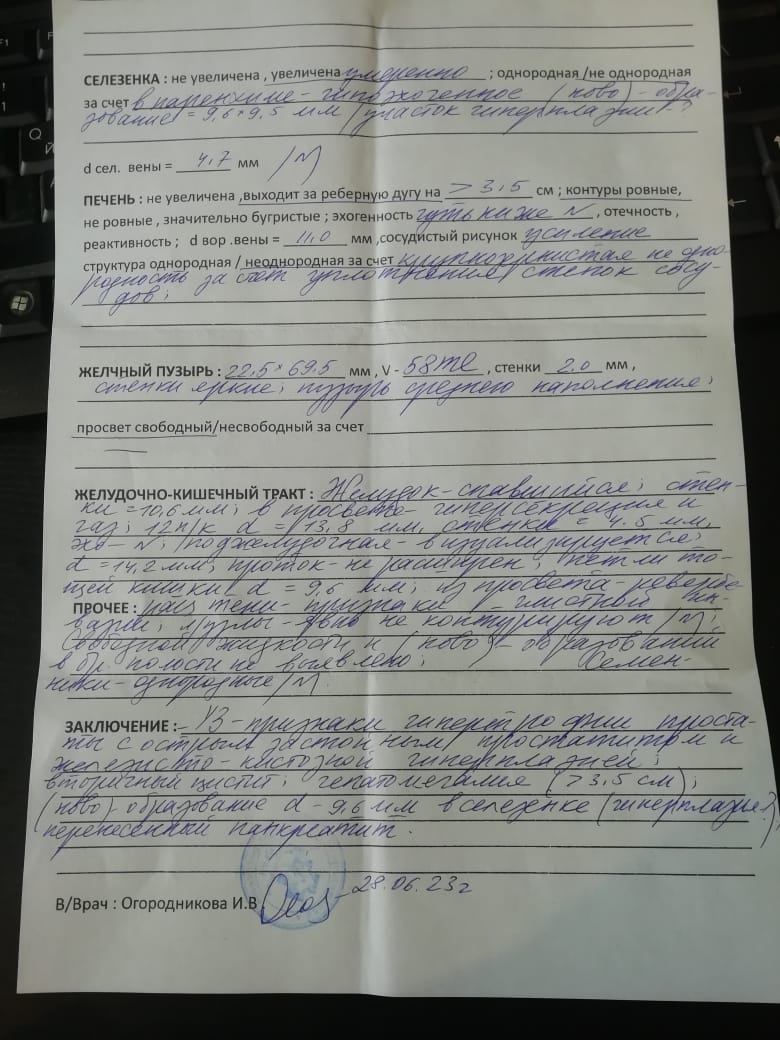 СЕЛЕЗЕНКА : не увеличена , увеличена умеренно ; однородная /не однородная
за счет в паренхиме - гипоэхогенное (ново) - обра-
зование = 9,6 × 9,5 мм /участок гиперплазии - ?
d сел. вены = 4,7 мм /N/
ПЕЧЕНЬ : не увеличена ,выходит за реберную дугу на > 3,5 см ; контуры ровные,
не ровные , значительно бугристые ; эхогенность чуть ниже N , отечность ,
реактивность ; d вор .вены = 11,0 мм ,сосудистый рисунок усиление
структура однородная / неоднородная за счет крупнозернистая не одно-
родность за счет уплотнения стенок сосу-
дов;
ЖЕЛЧНЫЙ ПУЗЫРЬ : 22,5 × 69,5 мм , V - 58 ml , стенки 2,0 мм ,
стенки яркие; пузырь среднего наполнения;
просвет свободный/несвободный за счет
ЖЕЛУДОЧНО-КИШЕЧНЫЙ ТРАКТ : Желудок - спавшийся; стен-
ки = 10,6 мм; в просвете - гиперсекреция и
газ; 12 п/к d = 13,8 мм, стенки = 4,5 мм,
эхо - N; /поджелудочная - визуализируется;
d = 14,2 мм; проток - не расширен; петли то-
щей кишки d = 9,6 мм; из просвета - ревербе-
ПРОЧЕЕ : рац. тени - признаки глистной ин-
вазии; л/узлы - явно не контурируют /N/;
Свободной жидкости и (ново) - образований
в бр. полости не выявлено; Семен-
ники - однородные /N/
ЗАКЛЮЧЕНИЕ : УЗ - признаки гипертрофии проста-
ты с острым застойным простатитом и
железисто - кистозной гиперплазией;
вторичный цистит; гепатомегалия (> 3,5 см);
(ново) - образование d - 9,6 мм в селезенке (гиперплазия?)
перенесенный панкреатит.
В/Врач : Огородникова И.В. 28.06.23г